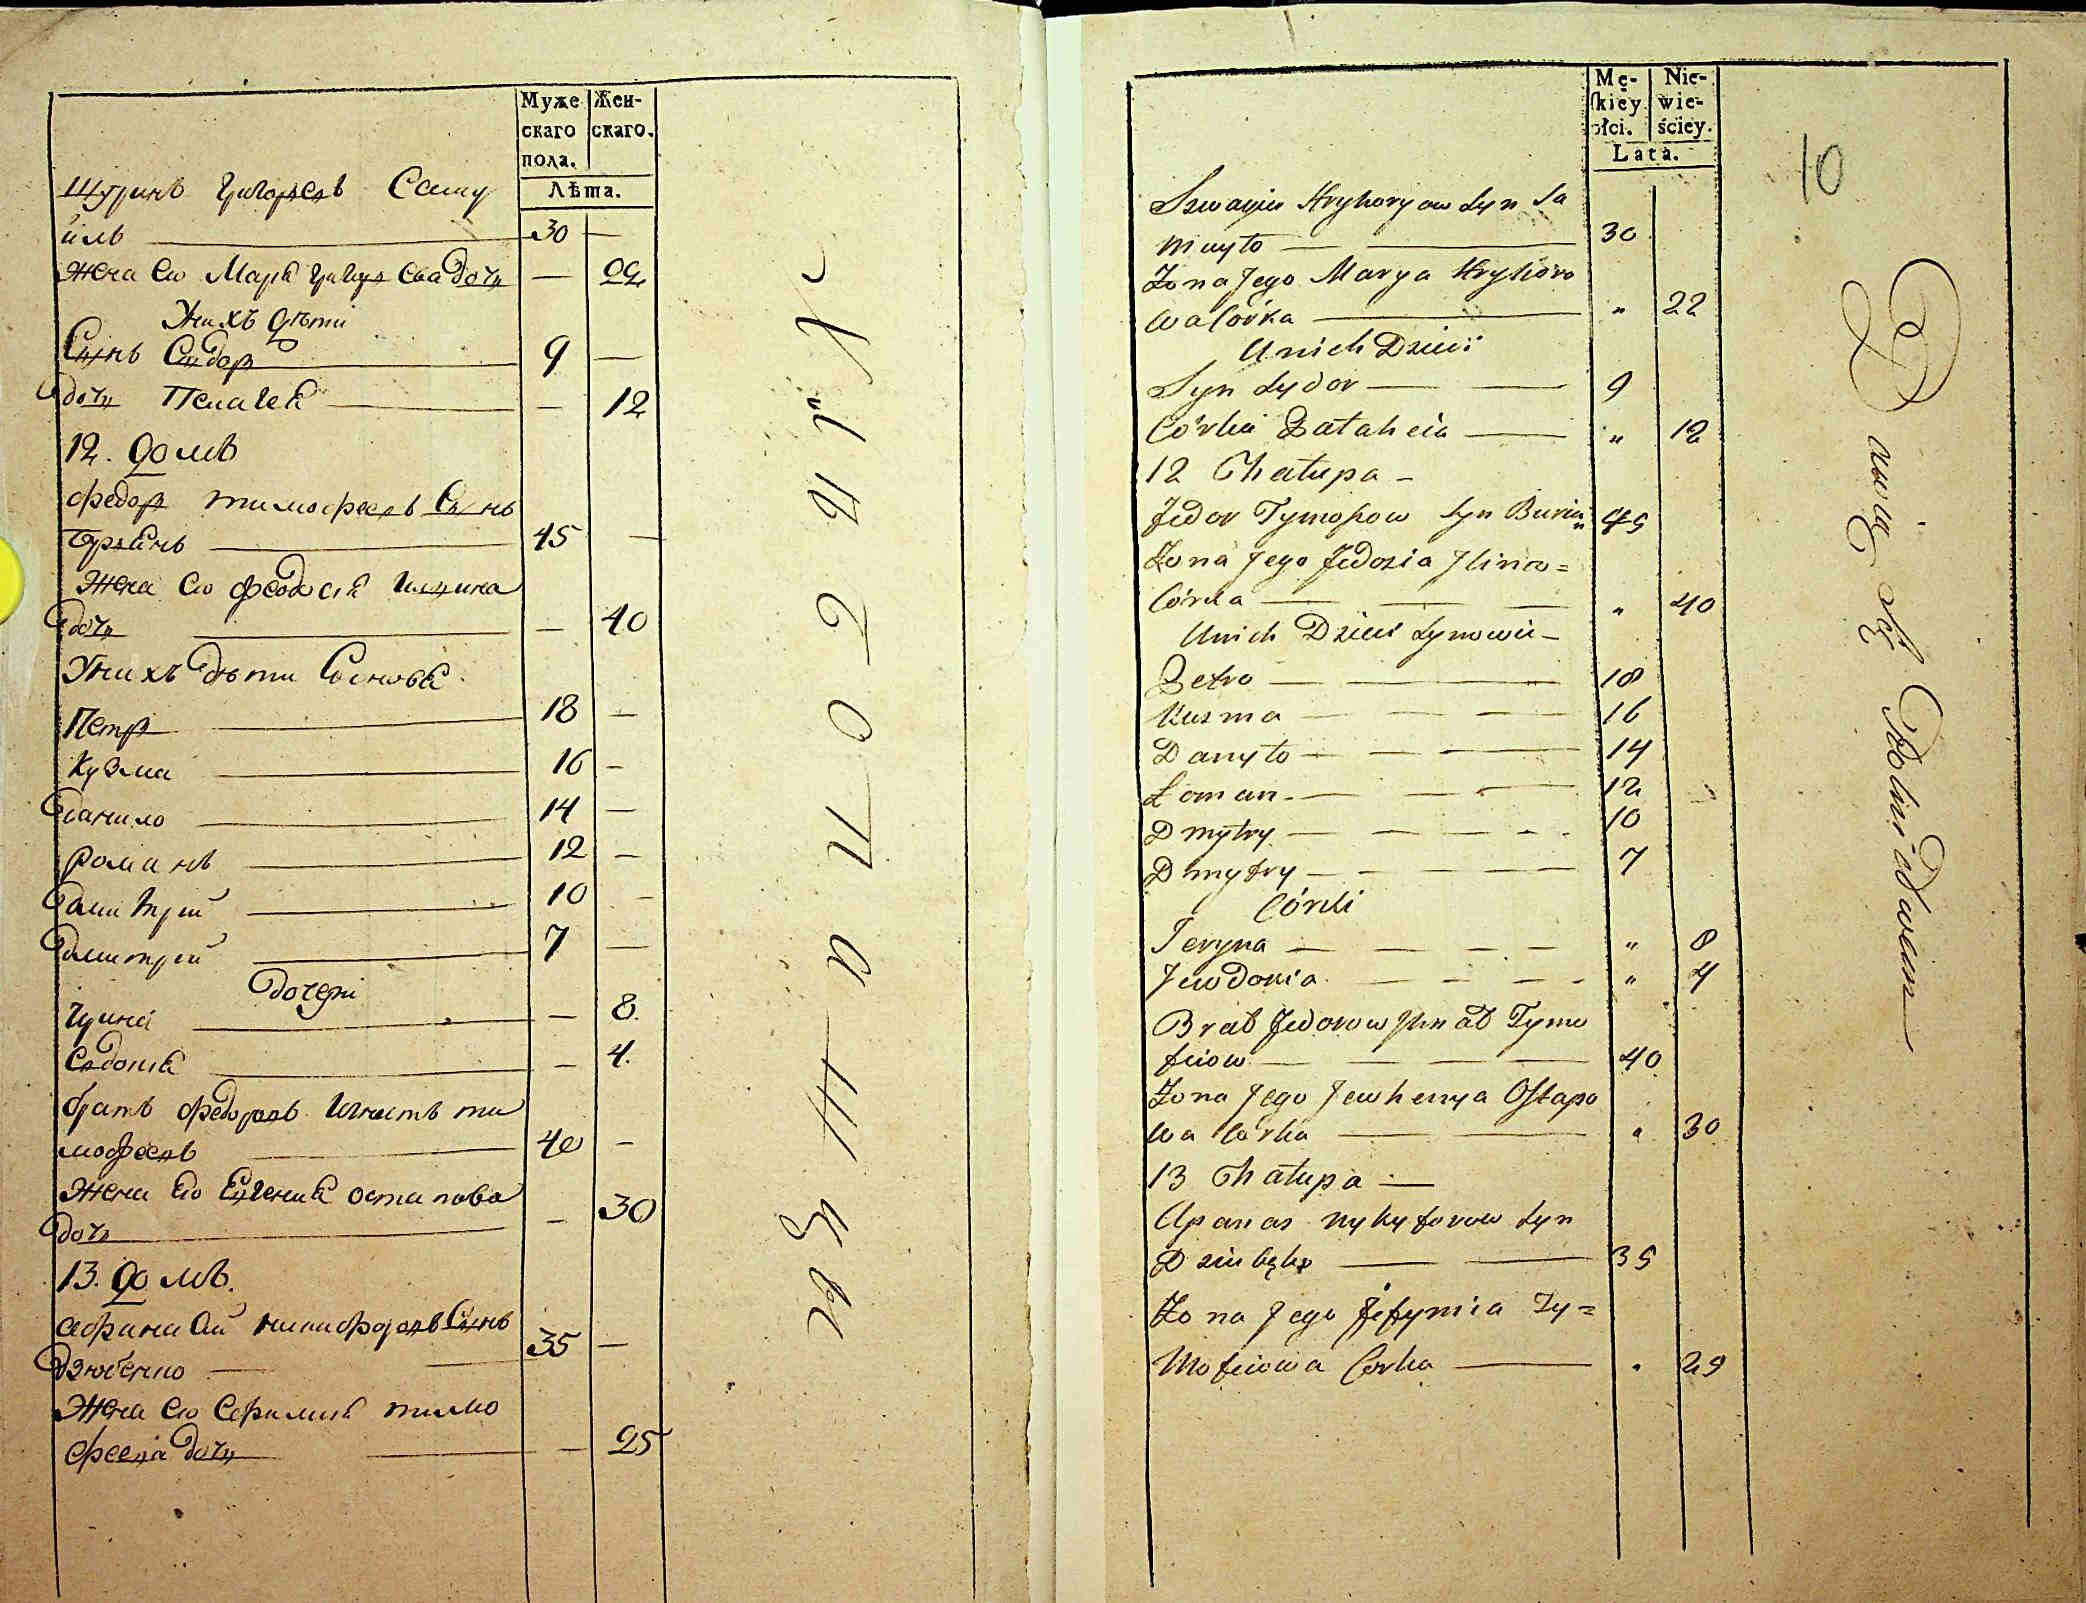 Муже
скаго
пола.
Жен-
скаго.
Лѣта.
Шуринъ Григорьевъ Саму
илъ — 30 —
жена ево Марья Григорьева дочь — 22
У нихъ дѣти
Сынъ Сидор — 9 —
дочь Пелагея — 12
12. домъ
Федор тимофеевъ Сынъ
— 45 —
Жена ево феодосия Ильина
дочь — 40
У нихъ дѣти Сыновья
Петр — 18 —
Кузма — 16 —
Данило — 14 —
романъ — 12 —
Дмитрий — 10 —
Дмитрий — 7 —
дочери
Ирина — 8.
Евдокия — 4.
братъ федоровъ Игнатъ ти
мофеевъ — 40 —
Жена ево Евгения остапова
дочь — 30
13. домъ.
Афанасий никифоровъ Сынъ
Дзюбенко — 35 —
Жена ево Ефимия тимо
феева дочь — 25
Mę-
skiey
płci.
Nie-
wie-
ściey.
Lata.
10
Szwagier Hryhoryow Syn Sa
muyło — 30
Żona Jego Marya Hryhoro
wa Córka — " 22
U nich Dzieci
Syn Sydor — 9
Córka Pałaheia — " 12
12 Chałupa –
Fedor Tymofiow Syn 45
Żona Jego Fedozia Jlina=
Córka — " 40
U nich Dzieci Synowie –
Petro — 18
Kuzma — 16
Danyło — 14
Roman — 12
Dmytry — 10
Dmytry — 7
Córki
Jeryna — " 8
Jewdokia — " 4
Brat Fedorow Jhnat Tymo
feiow — 40
Żona Jego Jewhenya Ostapo
wa Corka — " 30
13 Chałupa —
Apanas Nykyforow Syn
— 35
Żona Jego Jefymia Ty=
mofeiowa Corka — " 25